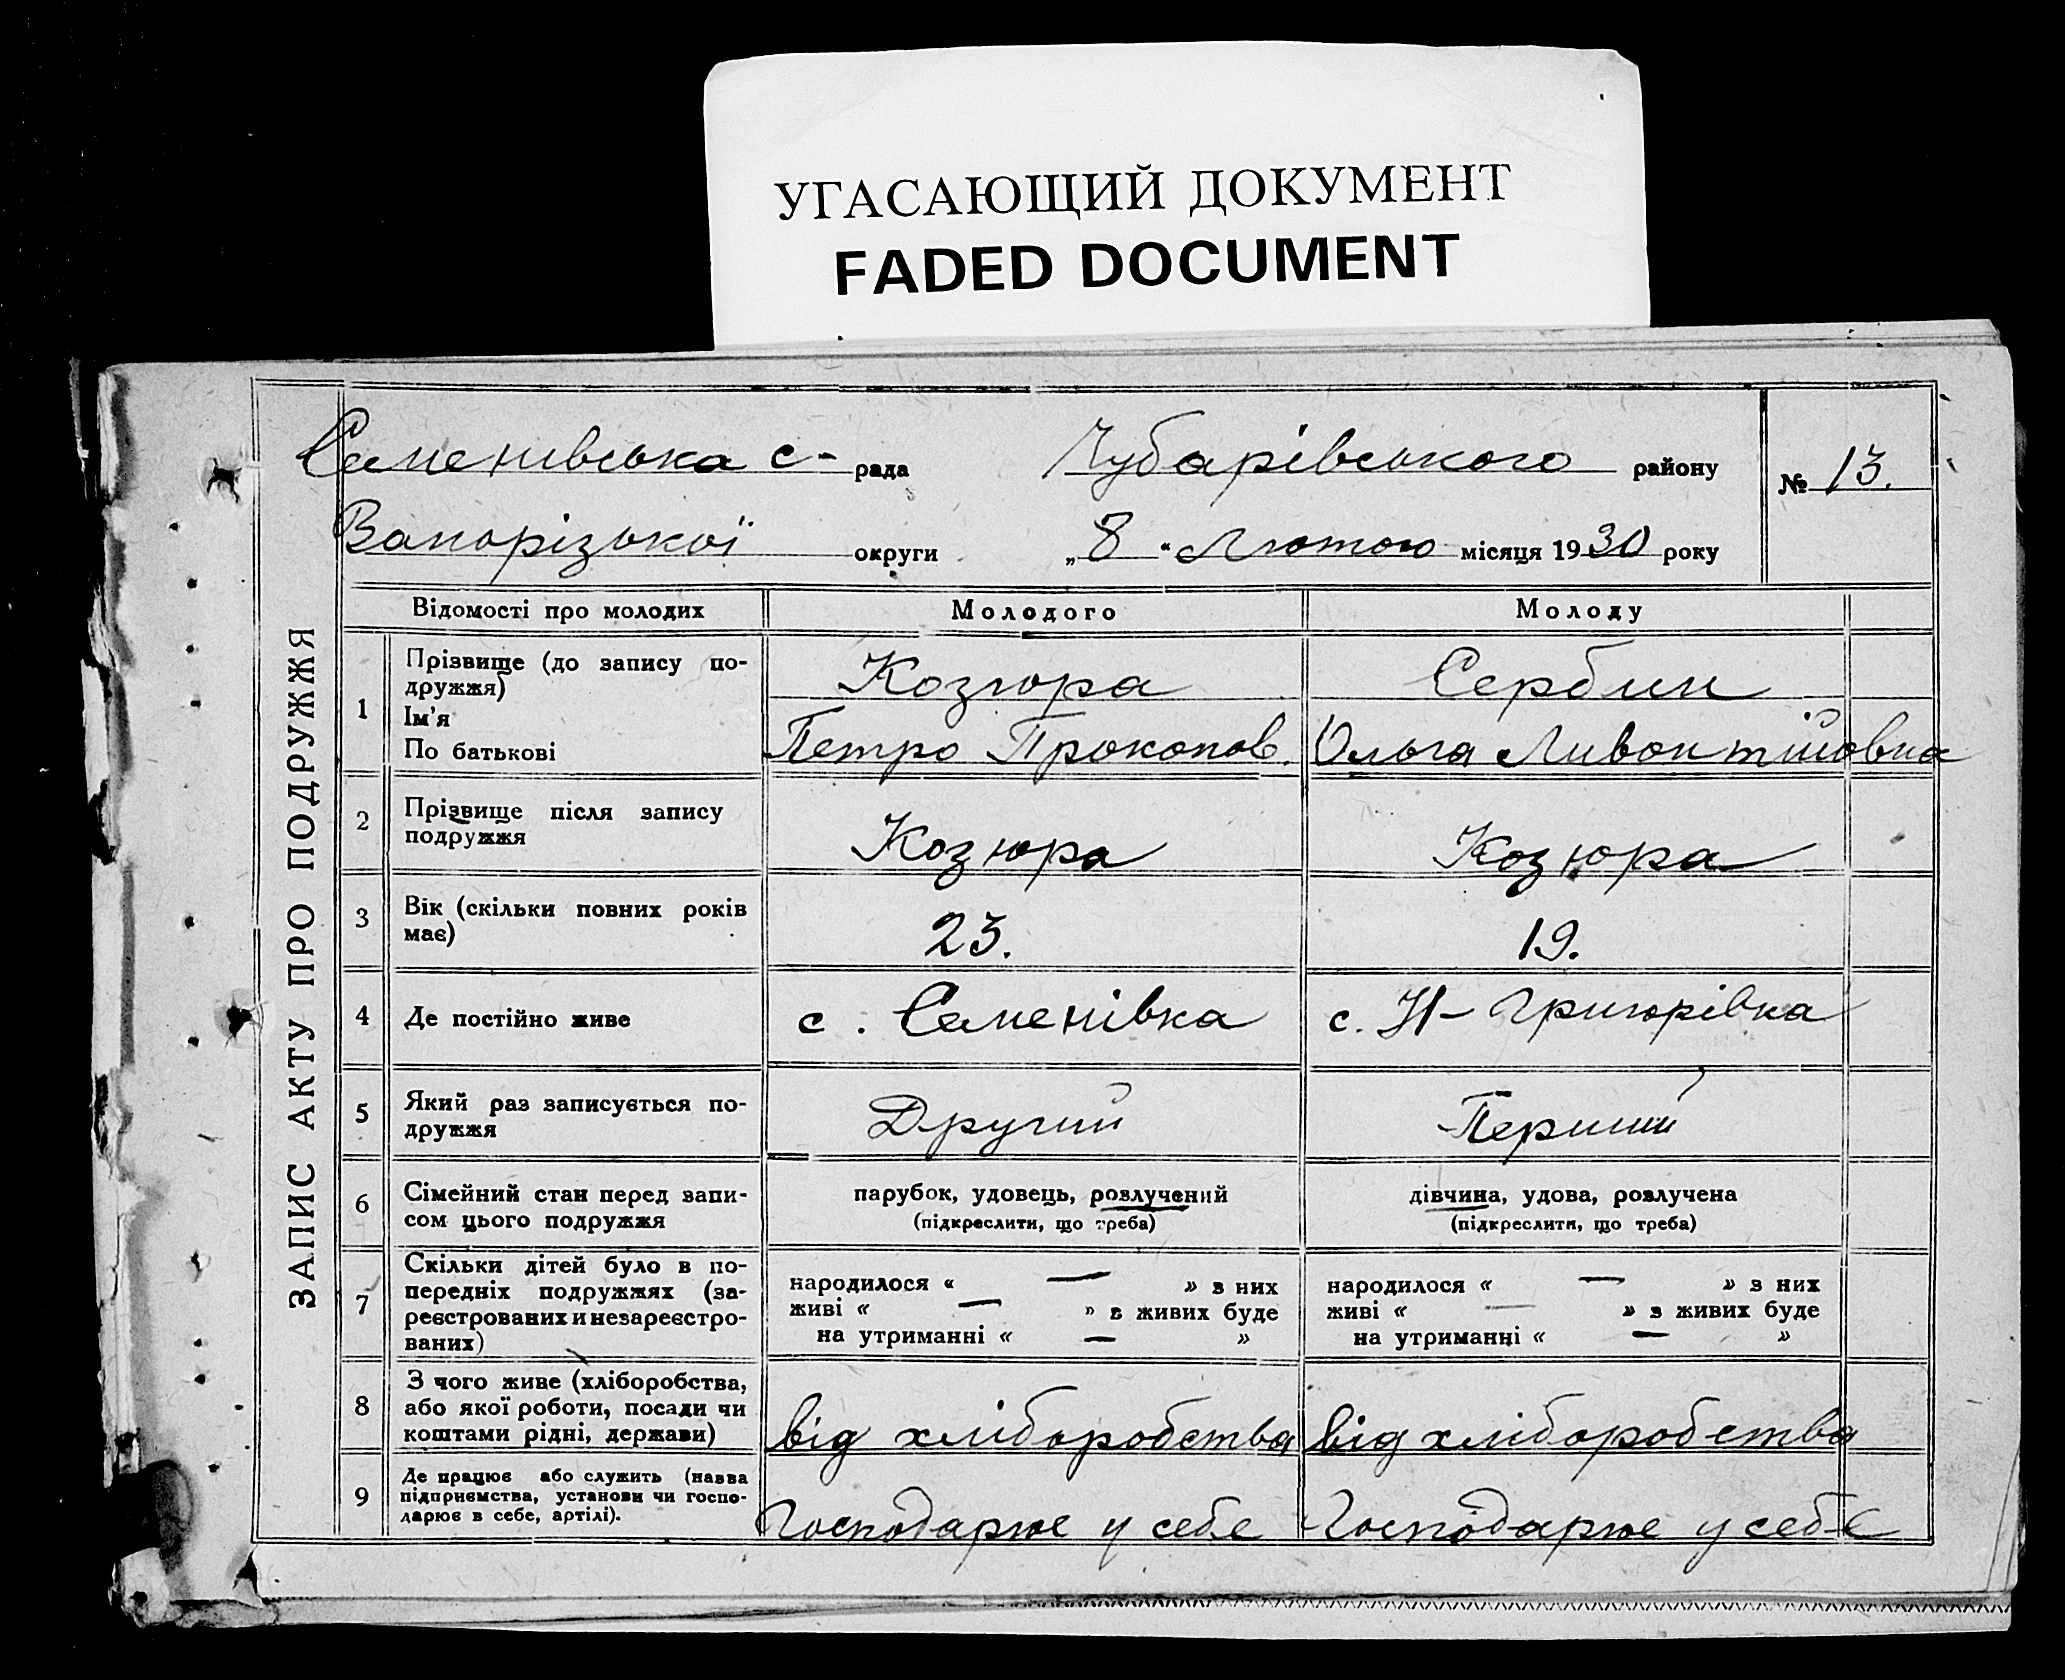 УГАСАЮЩИЙ ДОКУМЕНТ
FADED DOCUMENT
ЗАПИС АКТУ ПРО ПОДРУЖЖЯ
Семенівська с- рада Чубарівського району № 13.
Запорізької округи „8“ Лютого місяця 1930 року
Відомості про молодих Молодого Молоду
1 Прізвище (до запису по-
дружжя) Козюра Сербин
Ім'я
По батькові Петро Прокопов. Ольга Ливонтіївна
2 Прізвище після запису
подружжя Козюра Козюра
3 Вік (скільки повних років
має) 23. 19.
4 Де постійно живе с. Семенівка с. Н-Григорівка
5 Який раз записується по-
дружжя Другий Перший
6 Сімейний стан перед запи-
сом цього подружжя
парубок, удовець, розлучений дівчина, удова, розлучена
(підкреслити, що треба) (підкреслити, що треба)
7 Скільки дітей було в по-
передніх подружжях (за-
реєстрованих и незареєстро-
ваних)
народилося « — » з них
живі « — » з живих буде
на утриманні « — »
народилося « — » з них
живі « — » з живих буде
на утриманні « — »
8 З чого живе (хліборобства,
або якої роботи, посади чи
коштами рідні, держави) від хліборобства від хліборобства
9 Де працює або служить (назва
підприємства, установи чи госпо-
дарює в себе, артілі). Господарює у себе Господарює у себе